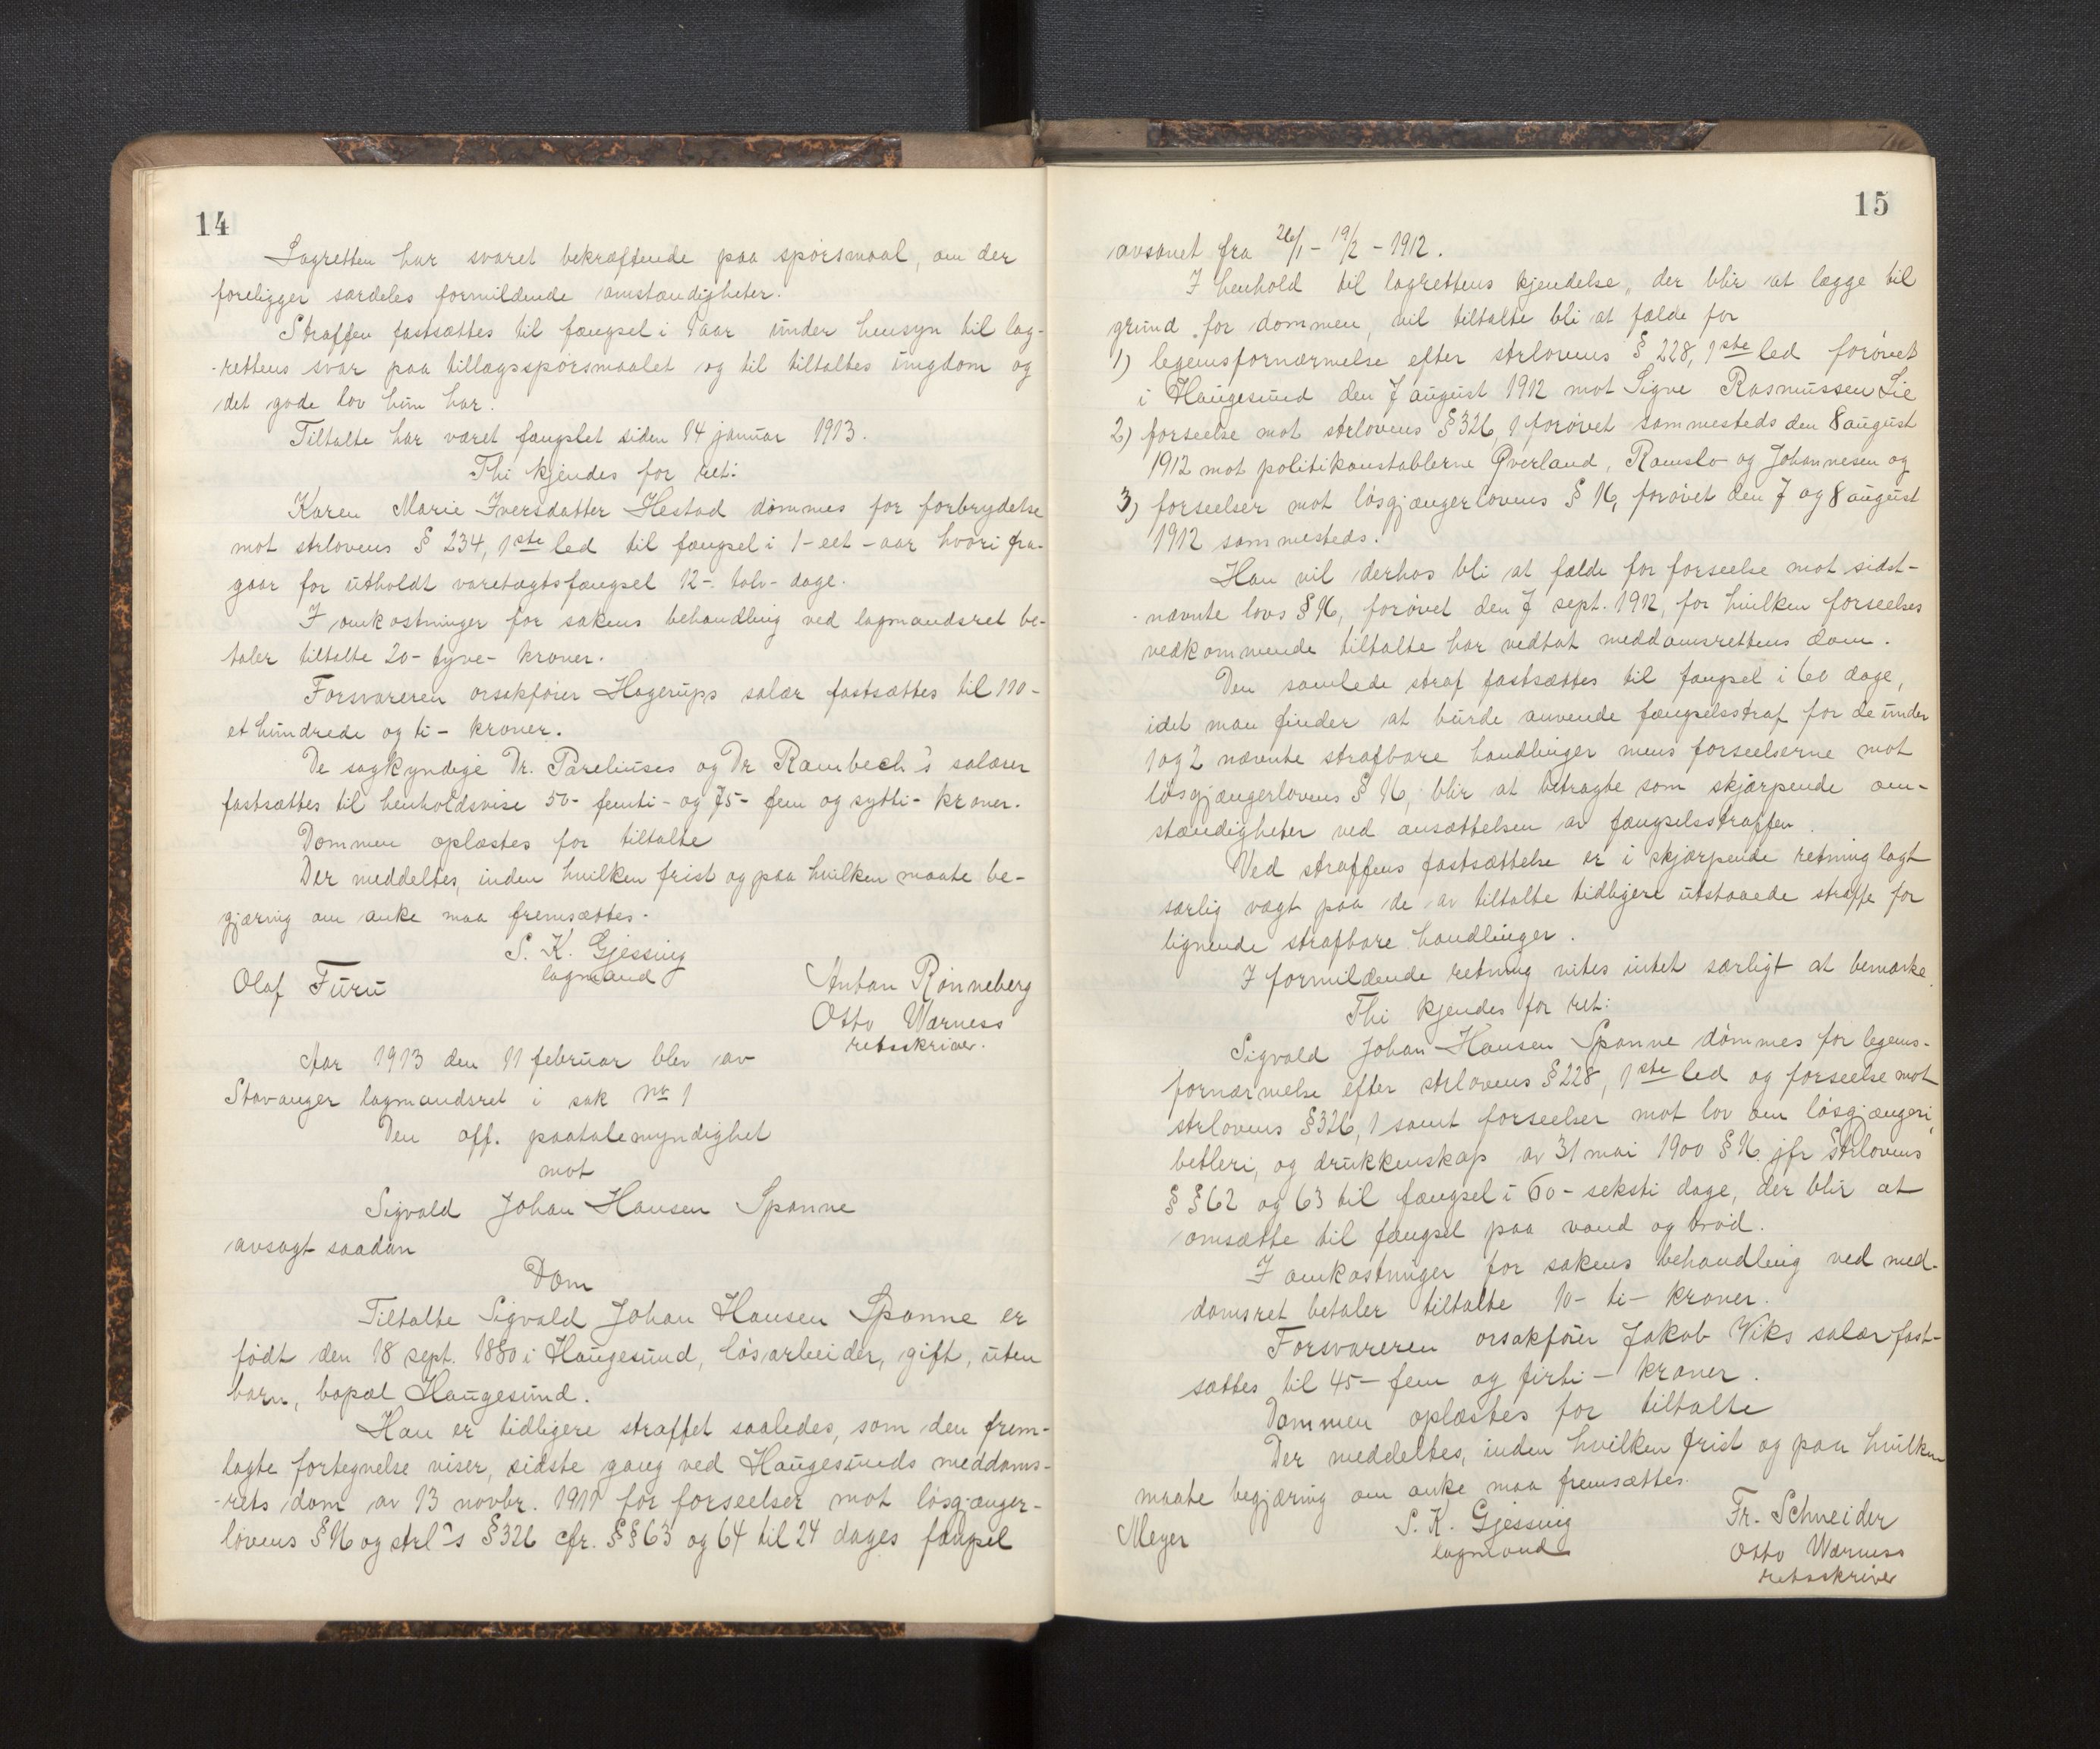 14
Lagretten har svaret bekræftende paa spørsmaal, om der
foreligger særdeles formildende omstændigheter.
Straffen fastsættes til fængsel i 1 aar under hensyn til lag-
rettens svar paa tillægsspørsmaalet og til tiltaltes ungdom og
det gode lov hun har.
Tiltalte har været fængslet siden 14 januar 1913.
Thi kjendes for ret:
Karen Marie Iversdatter Hestad dømmes for forbrydelse
mot strlovens § 234, 1ste led til fængsel i 1 - eet - aar hvori fra-
gaar for utholdt varetægtsfængsel 12 - tolv - dage.
I omkostninger for sakens behandling ved lagmandsret be-
taler tiltalte 20 - tyve - kroner.
Forsvareren orsakfører Hagerups salær fastsættes til 110 -
et hundrede og ti - kroner.
De sagkyndige Dr. Pareliuses og Dr Rambech's salærer
fastsættes til henholdsvise 50 - femti - og 75 - fem og sytti - kroner.
Dommen oplæstes for tiltalte
Der meddeltes, inden hvilken frist og paa hvilken maate be-
gjæring om anke maa fremsættes.
S. K. Gjessing
lagmand
Olaf Furu
Anton Rønneberg
Otto Wærness
retsskriver.
Aar 1913 den 11 februar blev av
Stavanger lagmandsret i sak No 1
Den off. paatalemyndighet
mot
Sigvald Johan Hansen Spanne
avsagt saadan
Dom
Tiltalte Sigvald Johan Hansen Spanne er
født den 18 sept. 1880 i Haugesund, løsarbeider, gift, uten
barn, bopæl Haugesund.
Han er tidligere straffet saaledes, som den frem-
lagte fortegnelse viser, sidste gang ved Haugesunds meddoms-
rets dom av 13 novbr. 1911 for forseelser mot løsgjænger-
lovens § 16 og strl's § 326 cfr. §§ 63 og 64 til 24 dages fængsel
15
avsonet fra 26/1 - 19/2 - 1912.
I henhold til lagrettens kjendelse, der blir at lægge til
grund for dommen, vil tiltalte bli at fælde for
1) legemsfornærmelse efter strlovens § 228, 1ste led forøvet
i Haugesund den 7 august 1912 mot Sigve Rasmussen Lie
2) forseelse mot strlovens § 326, 1 forøvet sammesteds den 8 august
1912 mot politikonstablerne Øverland, Ramslo og Johannesen og
3) forseelser mot løsgjængerlovens § 16, forøvet den 7 og 8 august
1912 sammesteds.
Han vil derhos bli at fælde for forseelse mot sidst-
nævnte lovs § 16, forøvet den 7 sept. 1912, for hvilken forseelses
vedkommende tiltalte har vedtat meddomsrettens dom.
Den samlede straf fastsættes til fængsel i 60 dage,
idet man finder at burde anvende fængselsstraf for de under
1 og 2 nævnte strafbare handlinger mens forseelserne mot
løsgjængerlovens § 16, blir at betragte som skjærpende om-
stændigheter ved ansættelsen av fængselsstraffen.
Ved straffens fastsættelse er i skjærpende retning lagt
særlig vægt paa de av tiltalte tidligere utstaaede straffe for
lignende strafbare handlinger.
I formildende retning vites intet særligt at bemærke.
Thi kjendes for ret:
Sigvald Johan Hansen Spanne dømmes for legems-
fornærmelse efter strlovens § 228, 1ste led og forseelse mot
strlovens § 326, 1 samt forseelser mot lov om løsgjængeri,
betleri, og drukkenskap av 31 mai 1900 § 16. jfr Strlovens
§ § 62 og 63 til fængsel i 60 - seksti dage, der blir at
omsætte til fængsel paa vand og brød.
I omkostninger for sakens behandling ved med-
domsret betaler tiltalte 10 - ti - kroner.
Forsvareren orsakfører Jakob Viks salær fast-
sættes til 45 - fem og firti - kroner.
Dommen oplæstes for tiltalte
Der meddeltes, inden hvilken frist og paa hvilken
maate begjæring om anke maa fremsættes.
Meyer
S. K. Gjessing
lagmand
Fr. Schneider
Otto Wærness
retsskriver